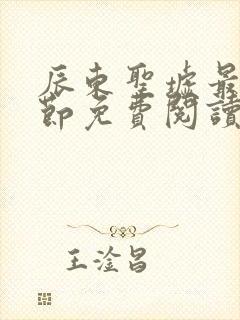 辰東聖墟最
節免費閱讀
王淦昌